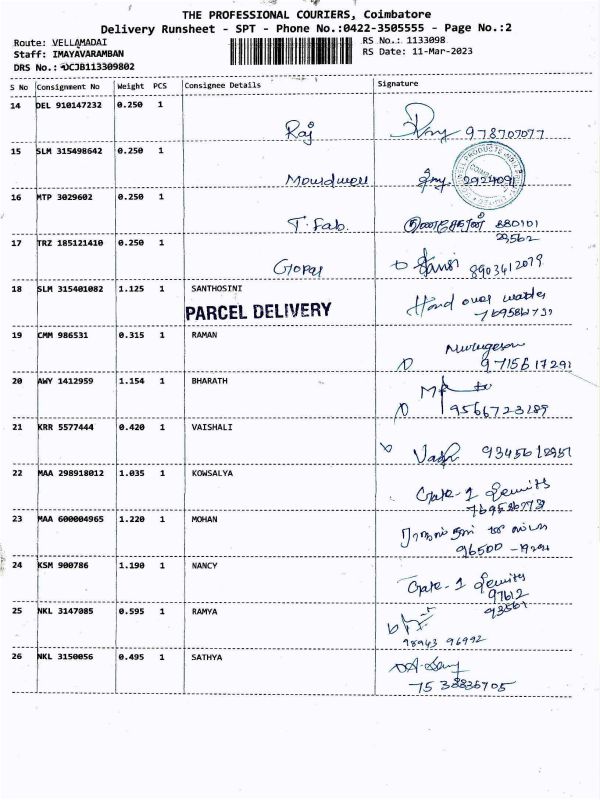 THE PROFESSIONAL COURIERS, Coimbatore
Delivery Runsheet - SPT - Phone No.:0422-3505555 - Page No.:2
Route: VELLAMADAI
RS No.: 1133098
Staff: IMAYAVARAMBAN
RS Date: 11-Mar-2023
DRS No.: DCJB113309802
S No Consignment No Weight PCS Consignee Details Signature
14 DEL 910147232 0.250 1
Raj 978707077
15 SLM 315498642 0.250 1
2924091
16 MTP 3029602 0.250 1
T. Fab. 880101
29562
17 TRZ 185121410 0.250 1
Gopal 8903412079
18 SLM 315401082 1.125 1 SANTHOSINI
PARCEL DELIVERY
Hand over
19 CMM 986531 0.315 1 RAMAN
Murugesan
9715617291
20 AWY 1412959 1.154 1 BHARATH
9566723189
21 KRR 5577444 0.420 1 VAISHALI
22 MAA 298918012 1.035 1 KOWSALYA
Gate-1
23 MAA 600004965 1.220 1 MOHAN
24 KSM 900786 1.190 1 NANCY
Gate-1
97612
93561
25 NKL 3147085 0.595 1 RAMYA
98943 96992
26 NKL 3150056 0.495 1 SATHYA
7538836705